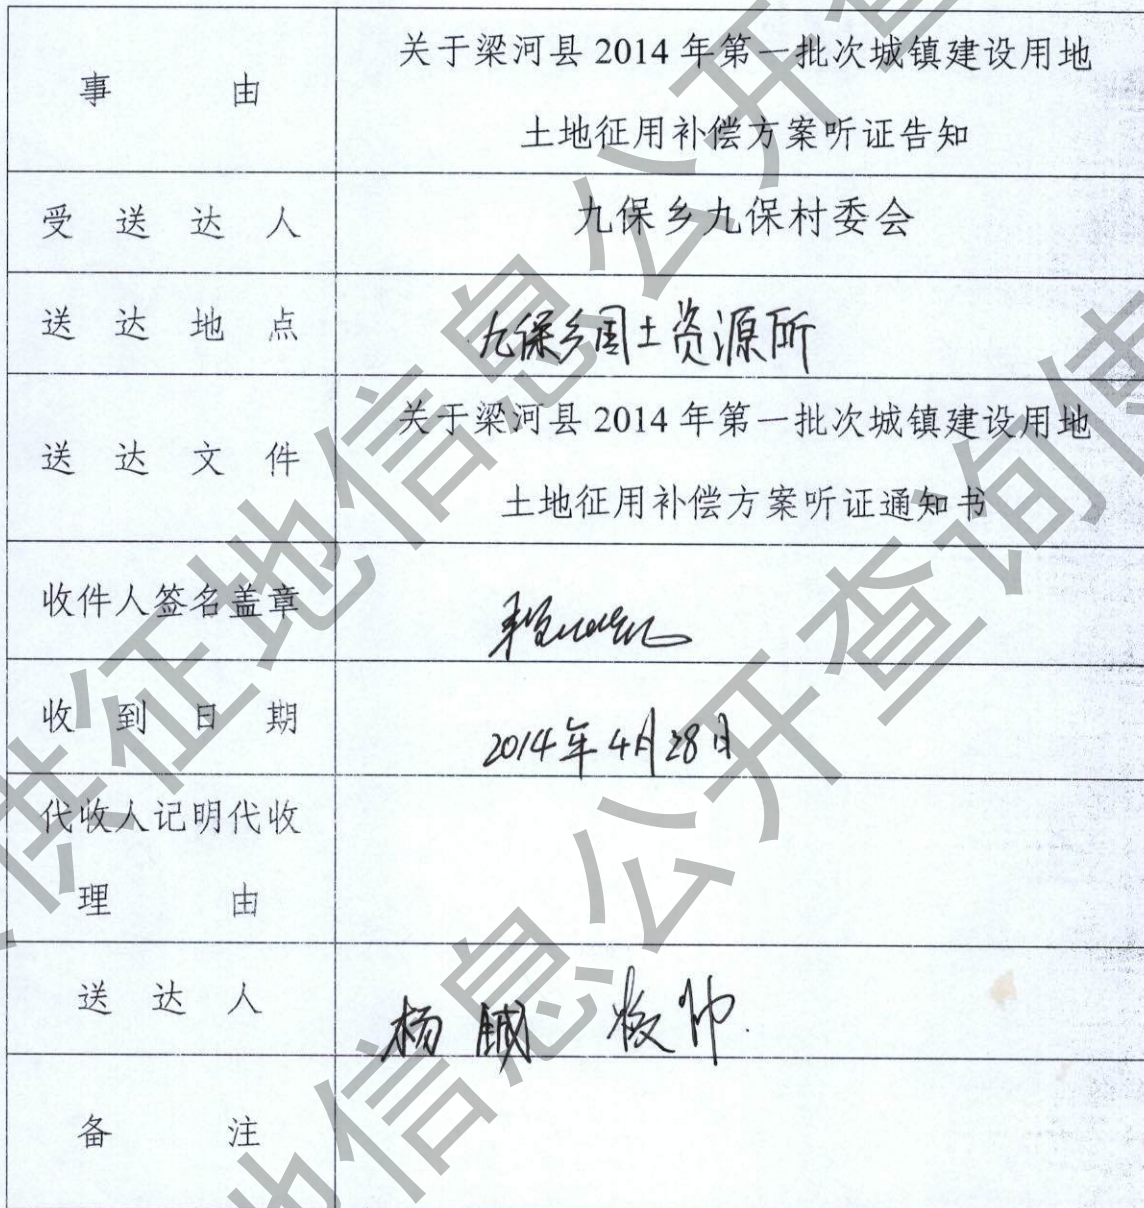 事由
关于梁河县 2014 年第一批次城镇建设用地
土地征用补偿方案听证告知
受送达人
九保乡九保村委会
送达地点
九保乡国土资源所
送达文件
关于梁河县 2014 年第一批次城镇建设用地
土地征用补偿方案听证通知书
收件人签名盖章
收到日期
2014年4月28日
代收人记明代收
理由
送达人
杨
备注
供征地信息公开查
地信息公开查询使